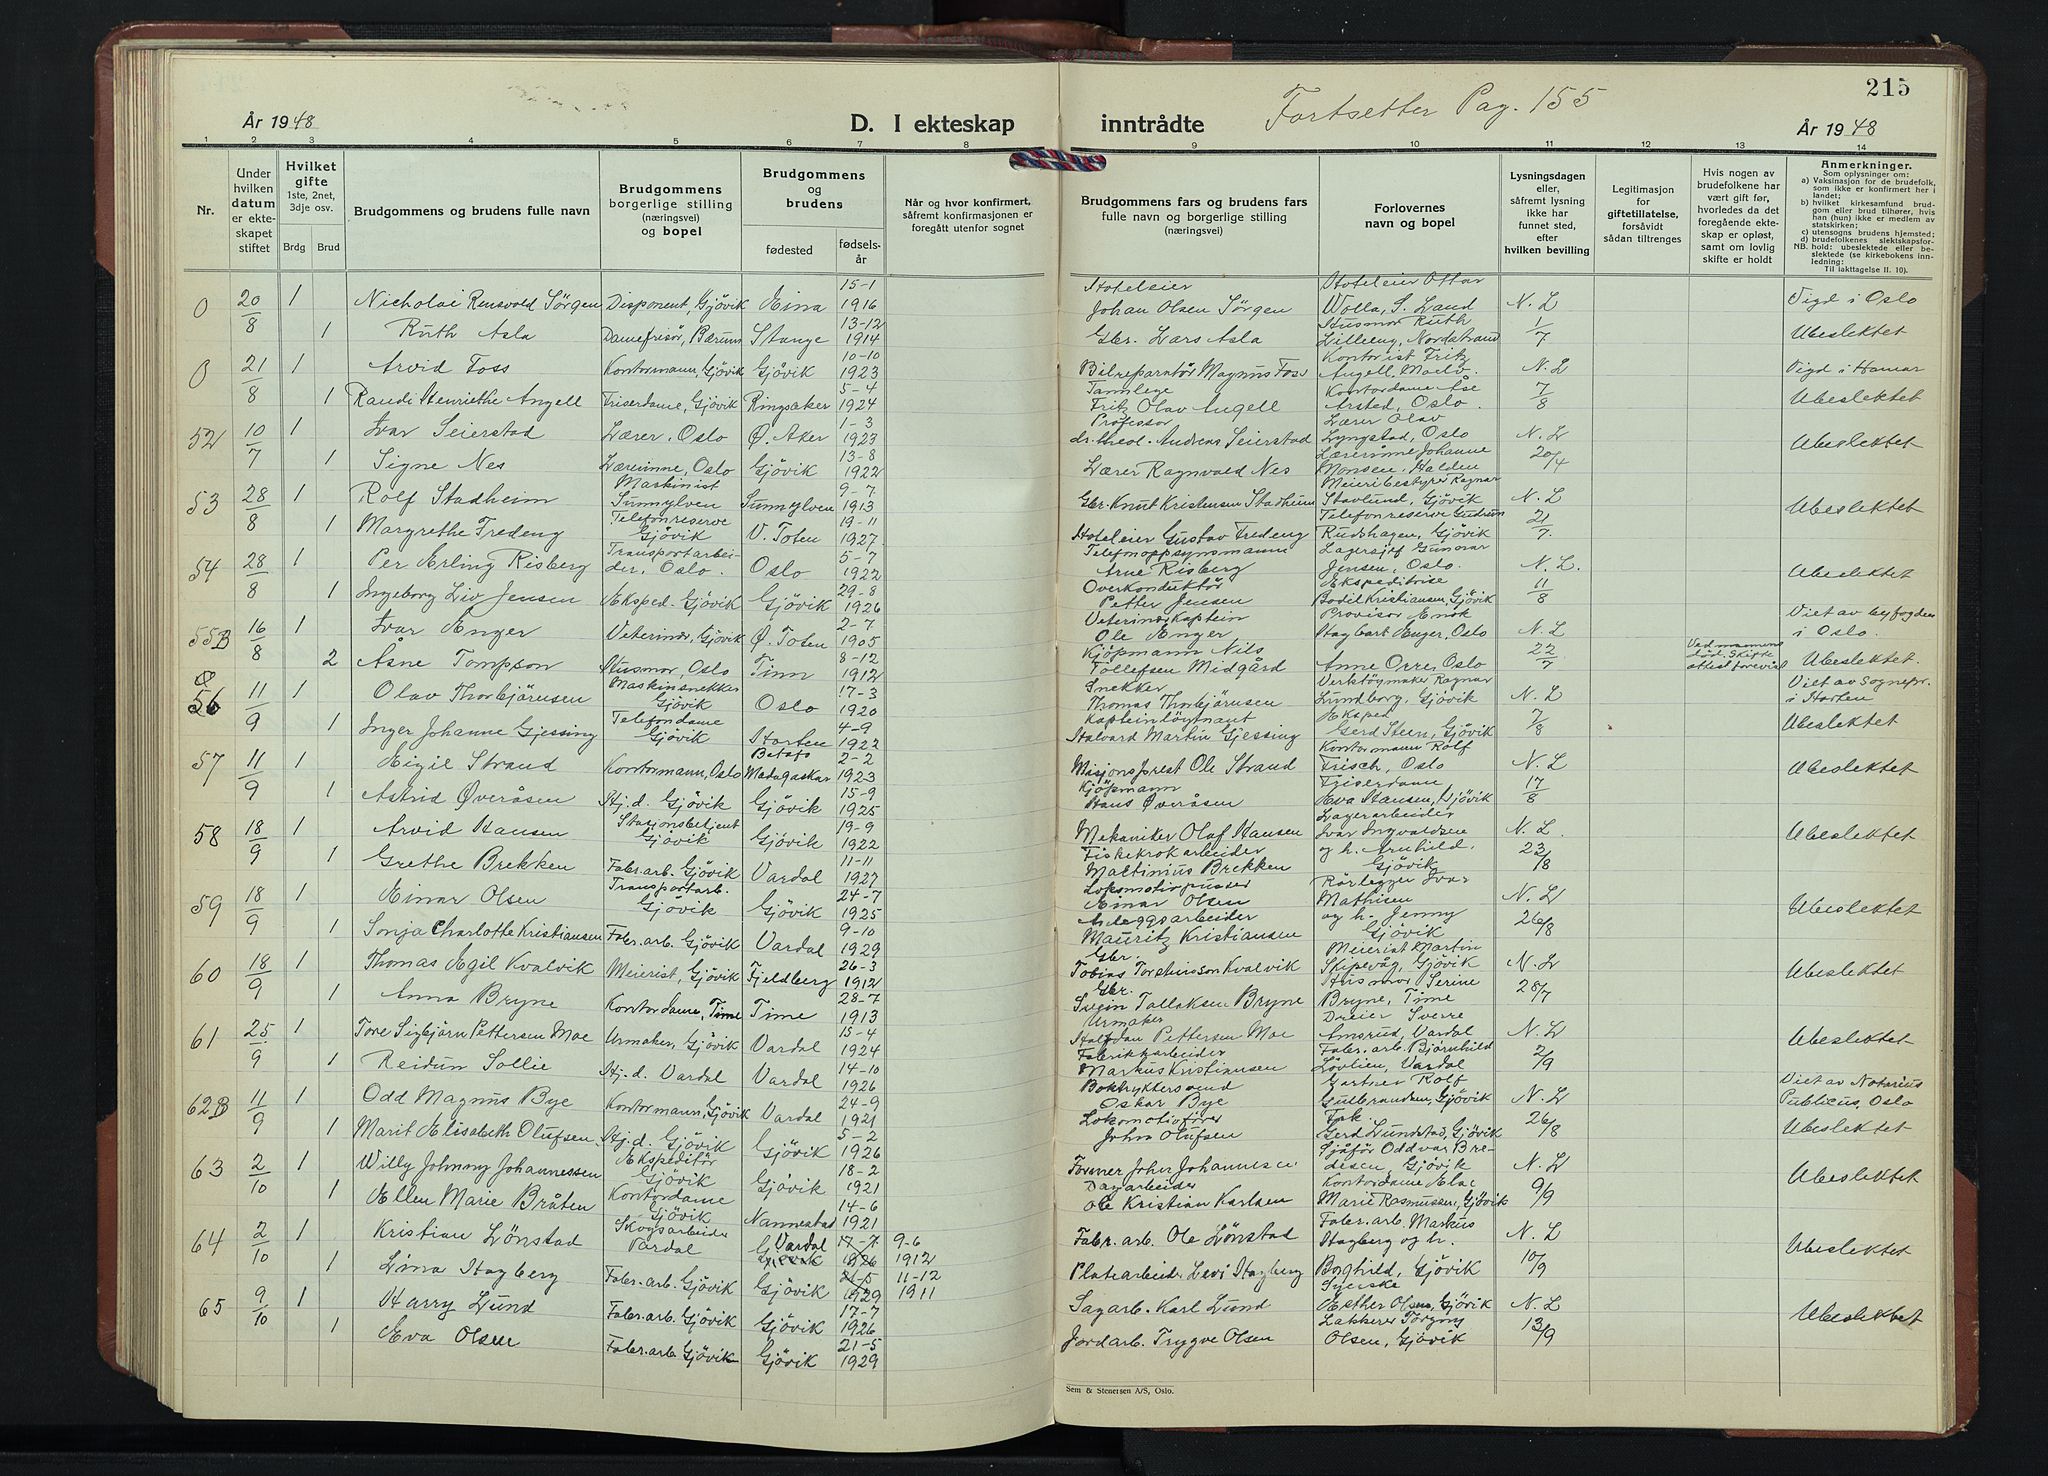 215
Fortsetter Pag. 155
År 1948
D. I ekteskap
inntrådte
År 1948
1 2 3 4 5 6 7 8
9 10 11 12 13 14
Nr.
Under hvilken datum er ekteskapet stiftet
Hvilket gifte
1ste, 2net, 3dje osv.
Brdg Brud
Brudgommens og brudens fulle navn
Brudgommens borgerlige stilling (næringsvei) og bopel
Brudgommens og brudens
fødested
fødselsår
Når og hvor konfirmert, såfremt konfirmasjonen er foregått utenfor sognet
Brudgommens fars og brudens fars fulle navn og borgerlige stilling (næringsvei)
Forlovernes navn og bopel
Lysningsdagen eller, såfremt lysning ikke har funnet sted, efter hvilken bevilling
Legitimasjon for giftetillatelse, forsåvidt sådan tiltrenges
Hvis nogen av brudefolkene har vært gift før, hvorledes da det foregående ekteskap er opløst, samt om lovlig skifte er holdt
Anmerkninger.
Som oplysninger om:
a) Vaksinasjon for de brudefolk, som ikke er konfirmert her i landet;
b) hvilket kirkesamfund brudgom eller brud tilhører, hvis han (hun) ikke er medlem av statskirken;
c) utensogns brudens hjemsted;
d) brudefolkenes slektskapsforhold: ubeslektede eller beslektede (se kirkebokens innledning:
NB.
Til iakttagelse II. 10).
0 20/8 1 Nicholai Rensvold Sørgen Disponent, Gjövik Eina 15-1 1916 Hoteleier Johan Olsen Sørgen Hoteleier Ottar Wolla, S. Land N. L Vigd i Oslo
1 Ruth Asla Damefrisør, Bærum Stange 13-12 1914 Gbr. Lars Asla Husmor Ruth Lilleeng, Nordstrand 1/7 Ubeslektet
0 21/8 1 Arvid Foss Kontormann, Gjövik Gjövik 10-10 1923 Bilreparatör Magnus Foss Kontorist Fritz Angell, Moelv N. L Vigd i Hamar
1 Randi Henriethe Angell Friserdame, Gjövik Ringsaker 5-4 1924 Tannlege Fritz Olav Angell Kontordame Åse Arsted, Oslo 7/8 Ubeslektet
52 10/7 1 Ivar Seierstad Lærer, Oslo Ø. Aker 1-3 1923 Professor dr. theol. Andreas Seierstad Lærer Olav Lyngstad, Oslo N. L Ubeslektet
1 Signe Nes Lærerinne, Oslo Gjövik 13-8 1922 Lærer Ragnvald Nes Lærerinne Johanne Monsen, Halden 20/4
53 28/8 1 Rolf Stadheim Maskinist Sunnylven Sunnylven 9-7 1913 Gbr. Knut Kristensen Stadheim Meieribestyrer Ragnar Stavlund, Gjövik N. L Ubeslektet
1 Margrethe Fredeng Telefonreserve Gjövik V. Toten 19-11 1927 Hoteleier Gustav Fredeng Telefonreserve Gudrun Rudshagen, Gjövik 21/7
54 28/8 1 Per Erling Risberg Transportarbeider, Oslo Oslo 5-7 1922 Telefonoppsynsmann Arne Risberg Lagersjef Gunnar Jensen, Oslo N. L. Ubeslektet
1 Ingeborg Liv Jensen Eksped. Gjövik Gjövik 29-8 1926 Overkonduktør Petter Jensen Ekspeditrise Bodil Kristiansen, Gjövik 11/8
55B 16/8 1 Ivar Enger Veterinær, Gjövik Ø. Toten 2-7 1905 Veterinærkaptein Ole Enger Provisor Enok Hagbart Enger, Oslo N. L Viet av byfogden i Oslo.
2 Åsne Tompson Husmor, Oslo Tinn 8-12 1912 Kjöpmann Nils Tollefsen Midgård Anne Orre, Oslo 22/7 Ved mannens död. Skifteattest forevist Ubeslektet.
56 11/9 1 Olav Thorbjörnsen Maskinsnekker Gjövik Oslo 17-3 1920 Snekker Thomas Thorbjörnsen Verktöymaker Ragnar Lundborg, Gjövik N. L Viet av Sognepr. i Horten
1 Inger Johanne Gjessing Telefondame Gjövik Horten 4-9 1922 Kaptein löytnant Halvard Martin Gjessing Eksped Gerd Steen, Gjövik 7/8 Ubeslektet
57 11/9 1 Eigil Strand Kontormann, Oslo Betafo Madagaskar 2-2 1923 Misjonsprest Ole Strand Kontormann Rolf Frisch, Oslo N. L Ubeslektet
1 Astrid Øveråsen Hj.d. Gjövik Gjövik 15-9 1925 Kjöpmann Hans Øveråsen Friserdame Eva Hansen, Gjövik 17/8
58 18/9 1 Arvid Hansen Stasjonsbetjent Gjövik Gjövik 19-9 1922 Mekaniker Olaf Hansen Lagerarbeider Ivar Ingvaldsen N. L. Ubeslektet
1 Grethe Brekken Fabr. arb. Gjövik Vardal 11-11 1927 Fiskekrokarbeider Maltinius Brekken og h. Arnhild, Gjövik 23/8
59 18/9 1 Einar Olsen Transportarb. Gjövik Gjövik 24-7 1925 Lokomotivpusser Einar Olsen Rörlegger Ivar Mathisen N. L Ubeslektet
1 Sonja Charlotte Kristiansen Fabr. arb. Gjövik Vardal 9-10 1929 Anleggsarbeider Mauritz Kristiansen og h. Jenny Gjövik 26/8
60 18/9 1 Thomas Egil Kvalvik Meierist, Gjövik Fjeldberg 26-3 1912 Gbr. Tobias Torsteinson Kvalvik Meierist Martin Skipevåg, Gjövik N. L Ubeslektet
1 Anna Bryne Kontordame, Time Time 28-7 1913 Gbr. Svein Tallaksen Bryne Husmor Serine Bryne, Time 28/7
61 25/9 1 Tore Sigbjörn Pettersen Moe Urmaker, Gjövik Vardal 15-4 1924 Urmaker Halfdan Pettersen Moe Dreier Sverre Amsrud, Vardal N. L Ubeslektet
1 Reidun Sollie Hj. d. Vardal Vardal 14-10 1926 Fabrikkarbeider Markus Kristiansen Fabr. arb. Björnhild Lövlien, Vardal 2/9
62B 11/9 1 Odd Magnus Bye Kontormann, Gjövik Vardal 24-9 1921 Boktrykkersvend Oskar Bye Gartner Rolf Gulbrandsen, Gjövik N. L Viet av Notarius Publicus, Oslo
1 Marit Elisabeth Olufsen Hj.d. Gjövik Gjövik 5-2 1926 Lokomotivfører John Olufsen Frk. Gerd Lundstad, Gjövik 26/8 Ubeslektet
63 2/10 1 Willy Johnny Johannessen Ekspeditör Gjövik Gjövik 18-2 1921 Former John Johannesen Sjåför Oddvar Bredesen, Gjövik N. L Ubeslektet
1 Ellen Marie Bråten Kontordame Gjövik Nannestad 14-6 1921 Dagarbeider Ole Kristian Karlsen Kontordame Else Marie Rasmussen, Gjövik 9/9
64 2/10 1 Kristian Lönstad Skogsarbeider Vardal Vardal Gjövik 17-7 1926 9-6 1912 Fabr. arb. Ole Lönstad Fabr. arb. Markus Hagberg og h. N. L Ubeslektet
1 Lina Hagberg Fabr. arb. Gjövik Gjövik 21-5 1929 11-12 1911 Platearbeider Levi Hagberg Borghild, Gjövik 10/9
65 9/10 1 Harry Lund Fabr. arb. Gjövik Gjövik 17-7 1926 Sagarb. Karl Lund Syerske Esther Olsen, Gjövik N. L Ubeslektet
1 Eva Olsen Fabr. arb. Gjövik Gjövik 21-5 1929 Jordarb. Trygve Olsen Lakkerer Torginy Olsen, Gjövik 13/9
Sem & Stenersen A/S, Oslo.